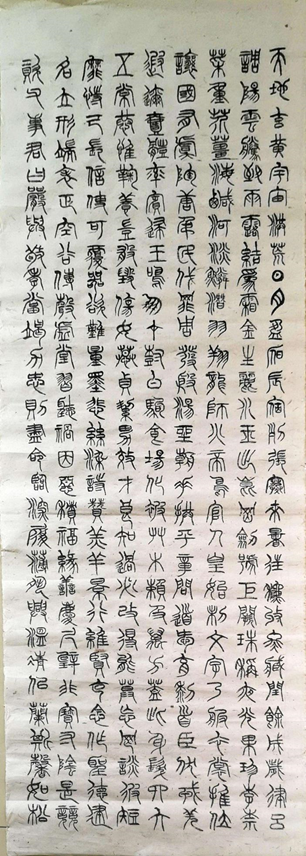 天地玄黃宇宙洪荒日月盈昃辰宿列張寒來暑往秋收冬藏閏餘成歲律呂
調陽雲騰致雨露結爲霜金生麗水玉出崑岡劍號巨闕珠稱夜光果珍李柰
菜重芥薑海鹹河淡鱗潛羽翔龍師火帝鳥官人皇始制文字乃服衣裳推位
讓國有虞陶唐弔民伐罪周發殷湯坐朝垂拱平章問道愛育黎首臣伏戎羌
遐邇壹體率賓歸王鳴鳳在樹白駒食場化被草木賴及萬方蓋此身髮四大
五常恭惟鞠養豈敢毀傷女慕貞潔男效才良知過必改得能莫忘罔談彼短
靡恃己長信使可覆器欲難量墨悲絲染詩讚羔羊景行維賢克念作聖德建
名立形端表正空谷傳聲虛堂習聽禍因惡積福緣善慶尺璧非寶寸陰是競
資父事君曰嚴與敬孝當竭力忠則盡命臨深履薄夙興溫凊似蘭斯馨如松